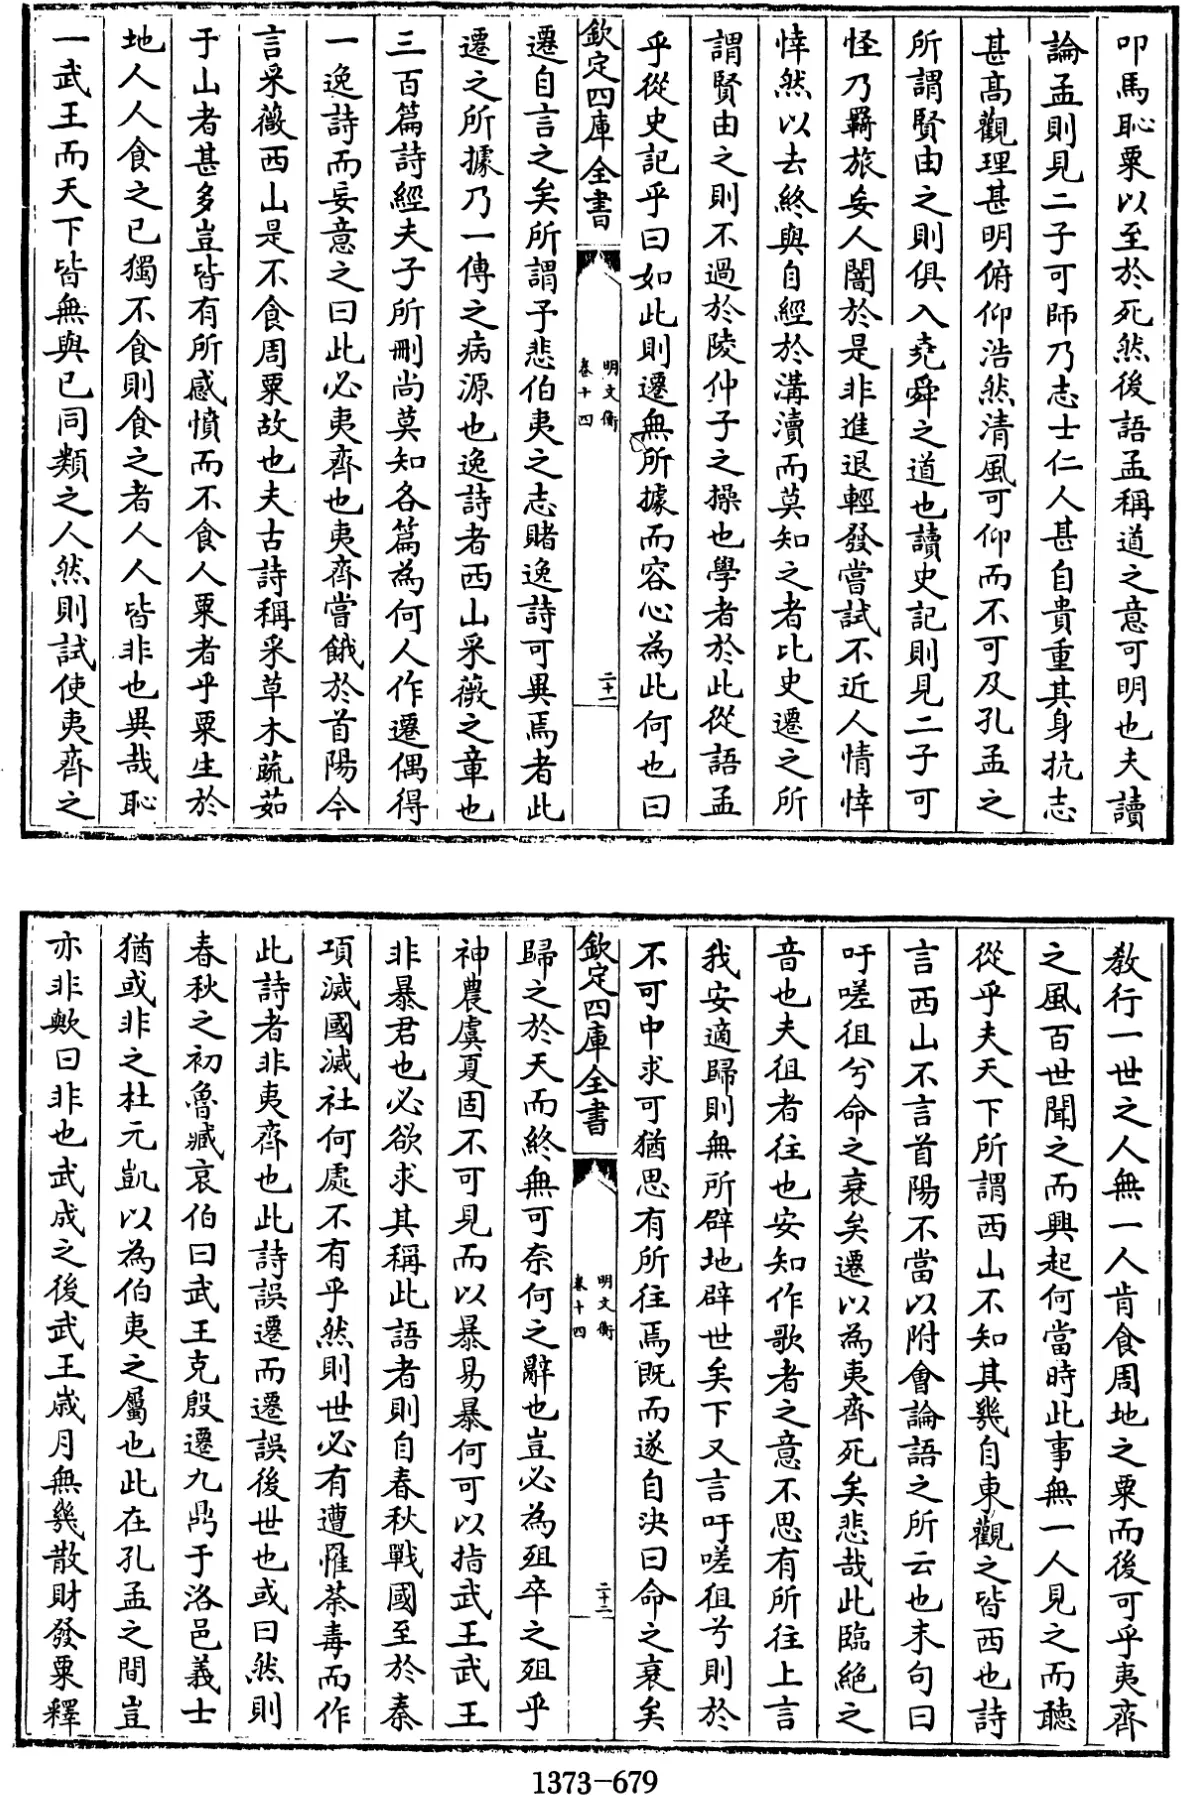 叩馬恥粟以至於死然後語孟稱道之意可明也夫讀
論孟則見二子可師乃志士仁人甚自貴重其身抗志
甚高觀理甚明俯仰浩然清風可仰而不可及孔孟之
所謂賢由之則俱入堯舜之道也讀史記則見二子可
怪乃羇旅妄人闇於是非進退輕發嘗試不近人情悻
悻然以去終與自經於溝瀆而莫知之者比史遷之所
謂賢由之則不過於陵仲子之操也學者於此從語孟
乎從史記乎曰如此則遷無所據而容心為此何也曰
欽定四庫全書
明文衡
卷十四
二十一
遷自言之矣所謂予悲伯夷之志睹逸詩可異焉者此
遷之所據乃一傳之病源也逸詩者西山采薇之章也
三百篇詩經夫子所刪尚莫知各篇為何人作遷偶得
一逸詩而妄意之曰此必夷齊也夷齊嘗餓於首陽今
言采薇西山是不食周粟故也夫古詩稱采草木蔬茹
于山者甚多豈皆有所感憤而不食人粟者乎粟生於
地人人食之已獨不食則食之者人人皆非也異哉恥
一武王而天下皆無與已同類之人然則試使夷齊之
教行一世之人無一人肯食周地之粟而後可乎夷齊
之風百世聞之而興起何當時此事無一人見之而聽
從乎夫天下所謂西山不知其幾自東觀之皆西也詩
言西山不言首陽不當以附會論語之所云也末句曰
吁嗟徂兮命之衰矣遷以為夷齊死矣悲哉此臨絶之
音也夫徂者往也安知作歌者之意不思有所往上言
我安適歸則無所辟地辟世矣下又言吁嗟徂兮則於
不可中求可猶思有所往焉既而遂自決曰命之衰矣
欽定四庫全書
明文衡
卷十四
二十二
歸之於天而終無可奈何之辭也豈必為殂卒之殂乎
神農虞夏固不可見而以暴易暴何可以指武王武王
非暴君也必欲求其稱此語者則自春秋戰國至於秦
項滅國滅社何處不有乎然則世必有遭罹荼毒而作
此詩者非夷齊也此詩誤遷而遷誤後世也或曰然則
春秋之初魯臧哀伯曰武王克殷遷九鼎于洛邑義士
猶或非之杜元凱以為伯夷之屬也此在孔孟之間豈
亦非歟曰非也武成之後武王歲月無幾散財發粟釋
1373-679